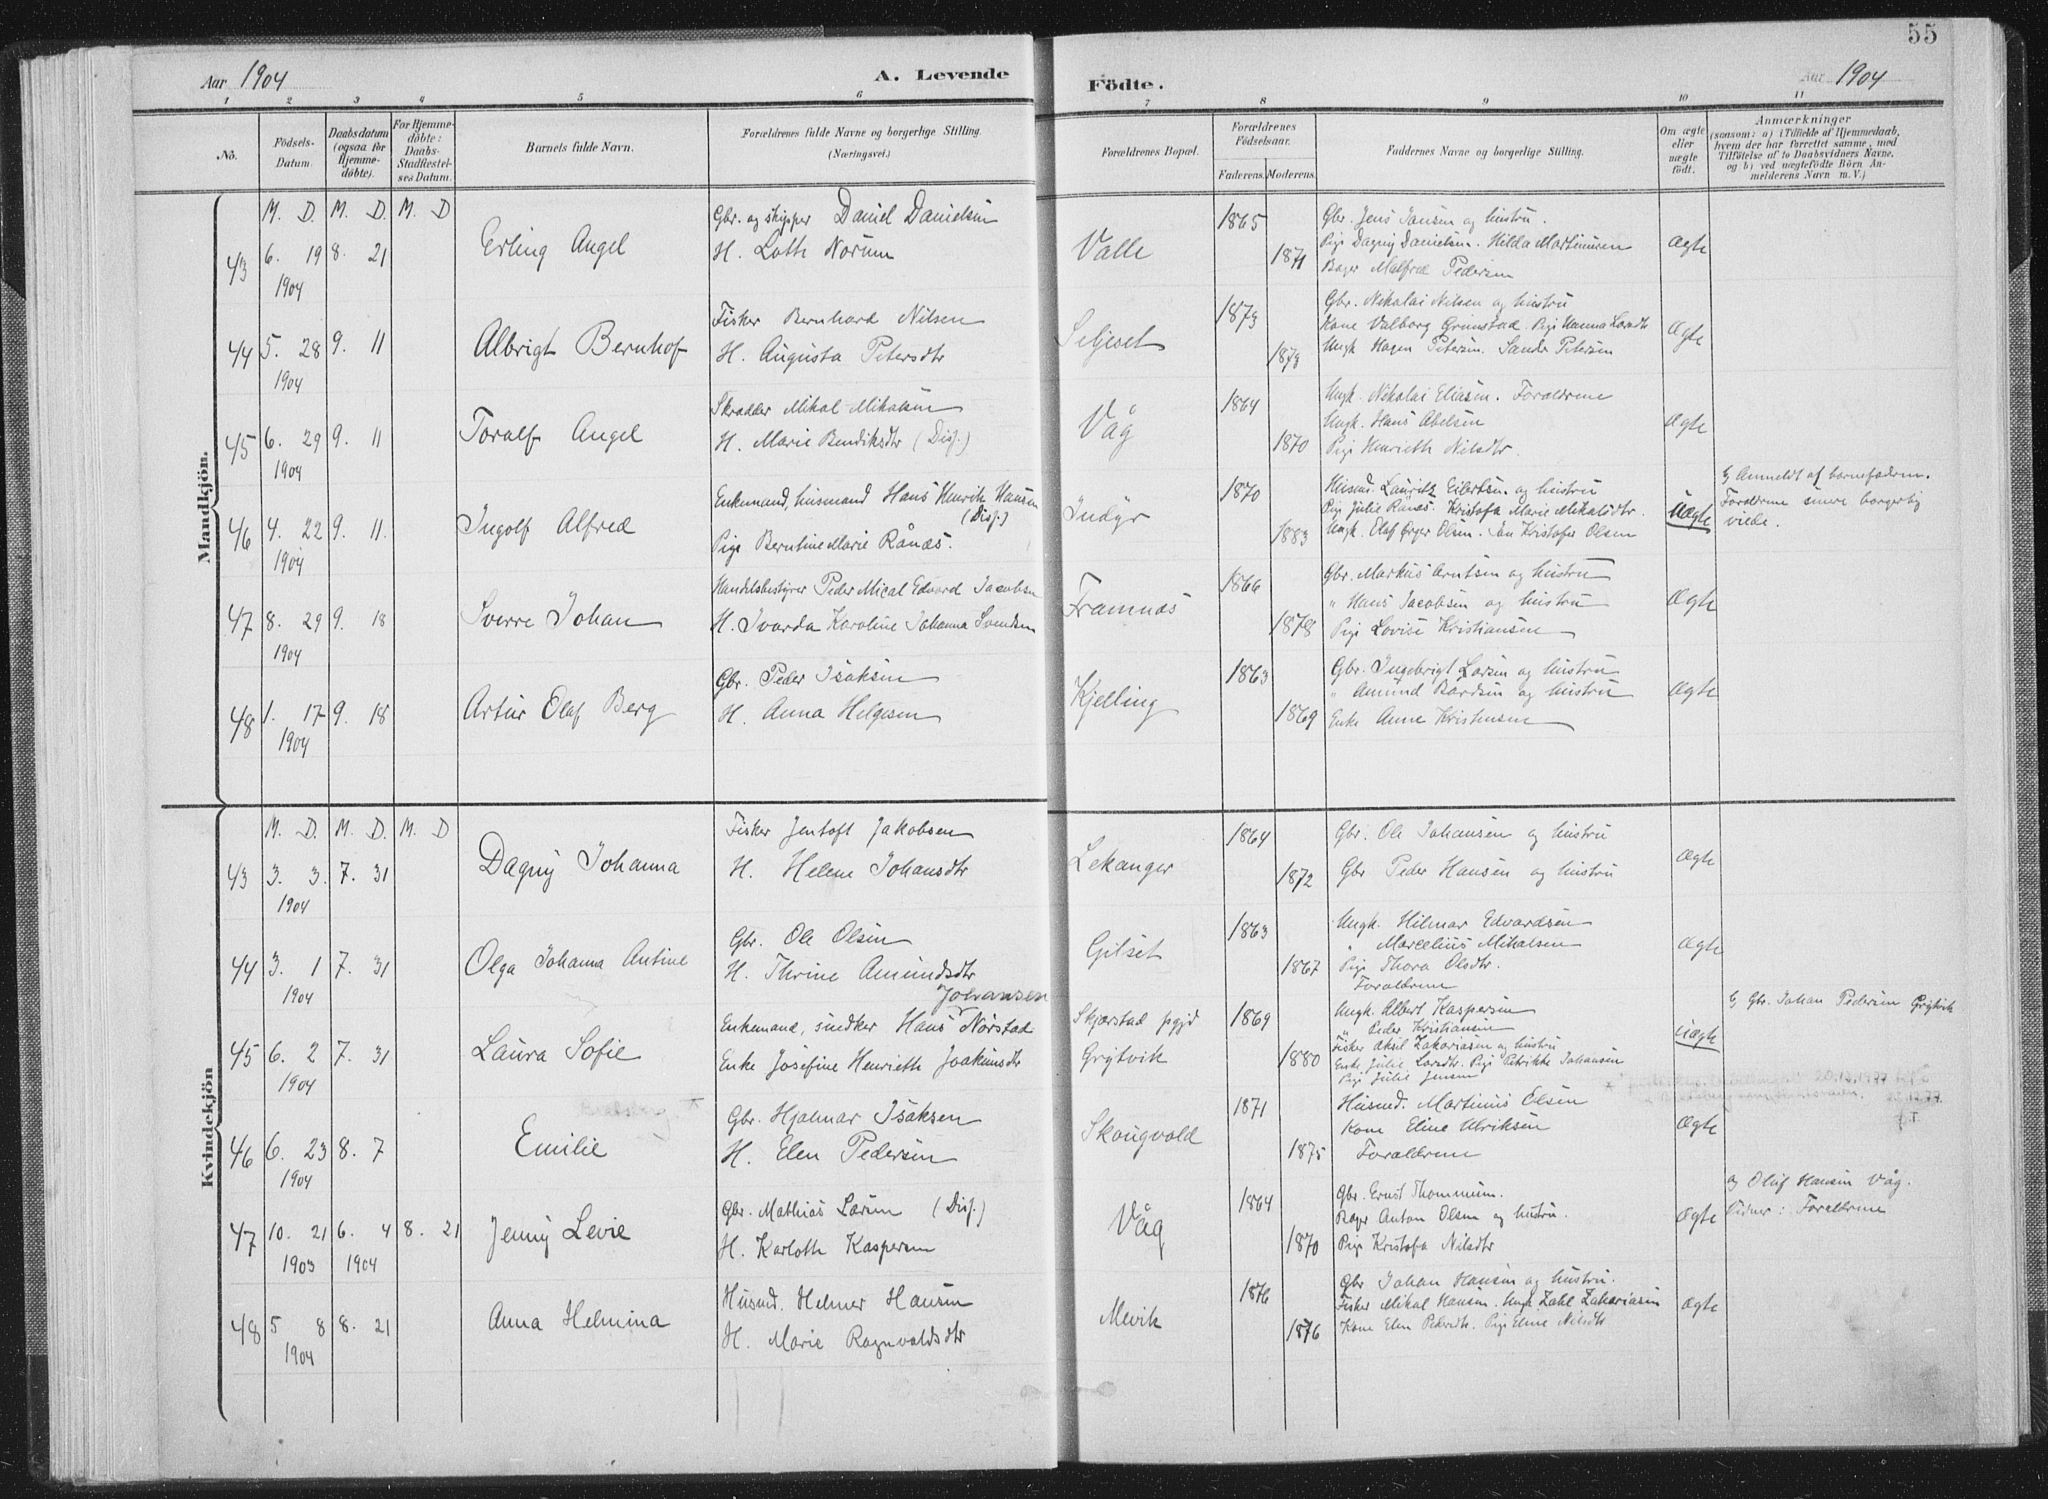 55
Aar 1904
A. Levende
Födte.
Aar 1904
1 2 3 4 5 6 7 8 9 10 11
Nô.
Födsels-
Datum.
Daabsdatum
(ogsaa for
Hjemme-
döbte).
For Hjemme-
döbte:
Daabs-
Stadfæstel-
ses Datum.
Barnets fulde Navn.
Forældrenes fulde Navne og borgerlige Stilling.
(Næringsvei.)
Forældrenes Bopæl.
Forældrenes
Födselsaar.
Faderens. Moderens.
Faddernes Navne og borgerlige Stilling.
Om ægte
eller
uægte
födt.
Anmærkninger
(saasom: a) i Tilfælde af Hjemmedaab,
hvem der har forrettet samme, med
Tilföielse af to Daabsvidners Navne,
og b) ved uægtefödte Börn An-
melderens Navn m. V.)
Mandkjön.
M. D. M. D. M. D
43 6. 19 8. 21
1904
Erling Angel
Gbr. og skipper Daniel Danielsen
H. Loth Norum
Valle
1865
1871
Gbr. Jens Jansen og hustru.
Pige Dagny Danielsen. Hilda Martinusen
Bager Malfred Pedersen
Ægte
44 5. 28 9. 11
1904
Albrigt Bernhof
Fisker Bernhard Nilsen
H. Augusta Petersdtr
Seljeset
1873
1873
Gbr. Nikolai Nilsen og hustru
Kone Valborg Grimstad. Pige Hanna Larsdtr
Ungk. Hagen Petersen. Sander Petersen
Ægte
45 6. 29 9. 11
1904
Toralf Angel
Skrædder Mikal Mikalsen
H. Marie Bendiksdtr (Diss.)
Våg
1864
1870
Ungk. Nikolai Eliasen. Forældrene
Ungk. Hans Abelsen
Pige Henrieth Nilsdtr.
Ægte
46 4. 22 9. 11.
1904
Ingolf Alfred
Enkemand, husmand Hans Henrik Hansen
(Diss.)
Pige Berntine Marie Rånæs.
Indyr
1870
1883
Husmd. Lauritz Eilertsen og hustru
Pige Julie Rånæs. Kristofa Marie Mikalsdtr.
Ungk. Olaf Ørger Olsen. Jen Kristofer Olsen
Uægte
b) Anmeldt af barnefaderen.
Forældrene senere borgerlig
viede.
47 8. 29 9. 18
1904
Sverre Johan
Handelsbestyrer Peder Mical Edvard Jacobsen
H. Ivarda Karoline Johanna Svendsen
Framnæs
1866
1878
Gbr. Markus Arntsen og hustru
" Hans Jacobsen og hustru
Pige Lovise Kristiansen
Ægte
48 1. 17 9. 18
1904
Artur Olaf Berg
Gbr. Peder Isaksen
H. Anna Helgesen
Kjelling
1863
1869
Gbr. Ingebrigt Larsen og hustru
" Amund Bardsen og hustru
Enke Anne Kristensen
Ægte
Kvindekjön
M. D. M. D. M. D
43 3. 3. 7. 31
1904
Dagny Johanna
Fisker Jentoft Jakobsen
H. Helene Johansdtr
Lekanger
1864
1872
Gbr. Ole Johansen og hustru
Gbr Peder Hansen og hustru
Ægte
44 3. 1 7. 31
1904
Olga Johanna Antine
Gbr. Ole Olsen
H. Thrine Amundsdtr
Gilset
1863
1867
Ungk. Hilmar Edvardsen
" Marcelius Mikalsen
Pige Thora Olsdtr.
Forældrene
Ægte
45 6. 2 7. 31
1904
Laura Sofie
Johansen
Enkemand, snedker Hans Norstad
Enke Josefine Henrieth Joakimsdtr
Skjærstad pgjd
Grytvik
1869
1880
Ungk. Albert Kaspersen
" Peder Kristiansen
Fisker Aksel Zakariasen og hustru
Enke Julie Larsdtr. Pige Petrikke Johansen
Pige Julie Jensen
Uægte
b) Gbr. Johan Pedersen Grytvik
46 6. 23 8. 7
1904
Emilie
Gbr. Hjalmar Isaksen
H. Elen Pedersen
Skougvold
1871
1875
Husmd. Martinus Olsen
Kone Eline Ulriksen
Forældrene
Ægte
47 10. 21 6. 4 8. 21
1903 1904
Jenny Levie
Gbr. Mathias Larsen (Diss.)
H. Karloth Kaspersen
Våg
1864
1870
Gbr. Ernst Thommesen.
Bager Anton Olsen og hustru.
Pige Kristofa Nilsdtr
Ægte
a) Oluf Hansen Våg.
Vidner: Forældrene
48 5 8 8. 21
1904
Anna Helmina
Husmd. Helmer Hansen
H. Marie Ragnvaldsdtr
Mevik
1876
1876
Gbr Johan Hansen og hustru.
Fisker Mikal Hansen. Ungk. Zahl Zakariasen
Kone Elen Pedersdtr. Pige Elene Nilsdtr
Ægte